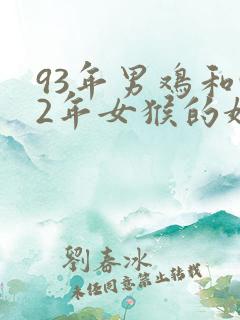 93年男鸡和
2年女猴的
劉春冰
未经同意禁止转载